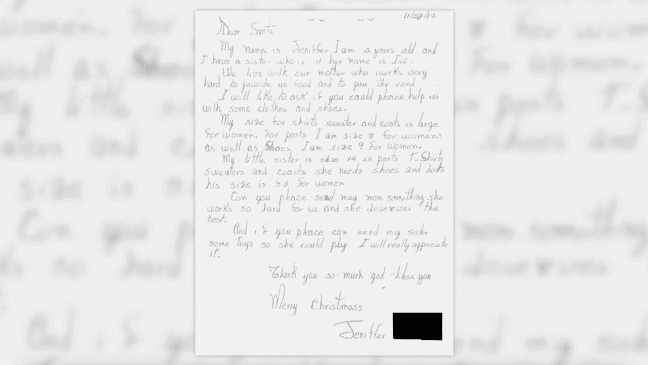 11/02/17
Dear Santa
My name is Jeniffer I am  years old and
I have a sister who is 11 her name is
We live with our mother who works very
hard to provide us food and to pay the rend.
I will like to ask if you could please help us
with some clothes and shoes.
My size for shirts sweater and coats is large
for women. for pants I am size 8 for womens
as well as Shoes I am size 9 for women.
My little sister is size 14 in pants T-Shirts
sweaters and coasts she needs shoes and
his size is for women
Can you please send muy mom something she
works so hard for us and she deserves the
best.
And if you please can send my sister
some toys so she could play I will really appreciate
it.
Thank you so much god bless you
Merry Christmass
Jeniffer